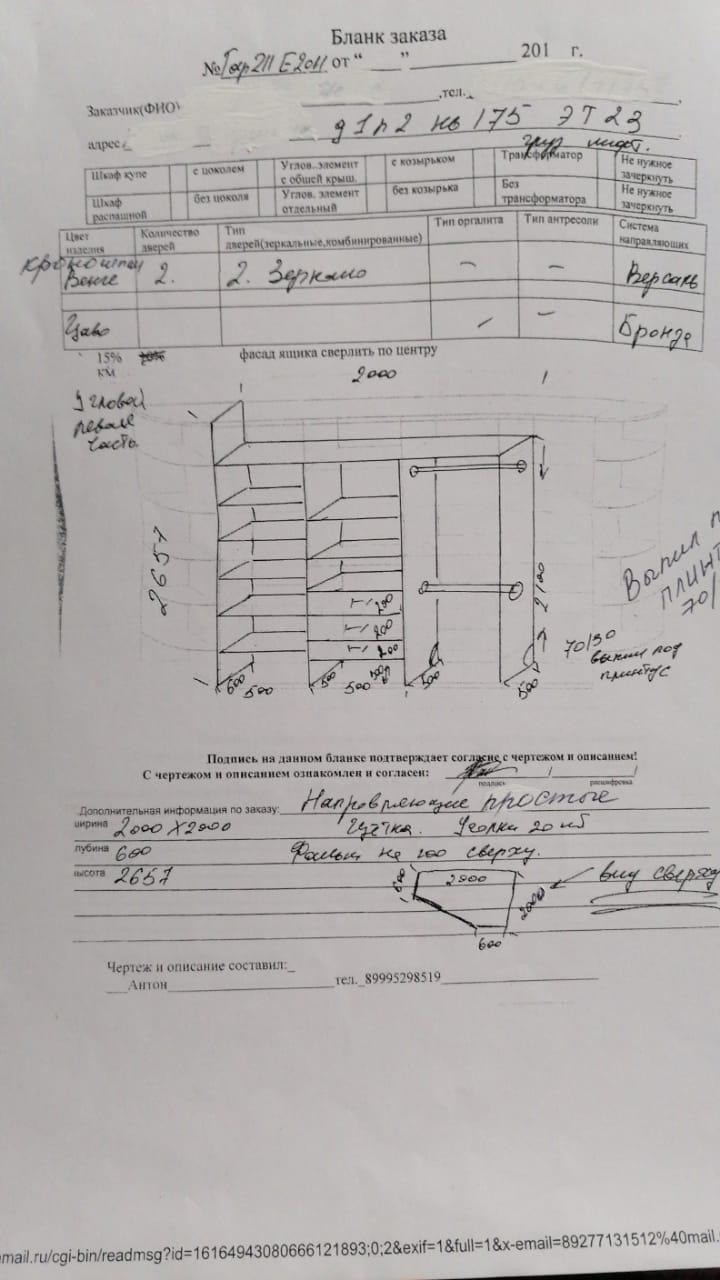 Бланк заказа
от “ ” 201 г.
Заказчик(ФИО) ,тел.
адрес д1 п2 кв 175 ЭТ 23
груз лифт.
Шкаф купе с цоколем Углов..элемент с обшей крыш. с козырьком Трансформатор Не нужное зачеркнуть
Шкаф распашной без цоколя Углов. элемент отдельный без козырька Без трансформатора Не нужное зачеркнуть
Цвет изделия Количество дверей Тип дверей(зеркальные,комбинированные) Тип оргалита Тип антресоли Система направляющих
Венге 2. 2. Зеркало – – Версаль
Цаво – – Бронза
15% 20% фасад ящика сверлить по центру
КМ
2000
Угловой
левая
часть
2657
2100
200
200
200
70/30
выпил под
плинтус
Выпил п
плинт
70/
600 500 500 500 500 500
Подпись на данном бланке подтверждает согласие с чертежом и описанием!
С чертежом и описанием ознакомлен и согласен:
подпись расшифровка
Дополнительная информация по заказу: Направляющие простые
ширина 2000 х 2000
лубина 600 сверху.
высота 2657
600 2000 2000 600
вид сверху
Чертеж и описание составил:_
Антон тел._89995298519
mail.ru/cgi-bin/readmsg?id=16164943080666121893;0;2&exif=1&full=1&x-email=89277131512%40mail.